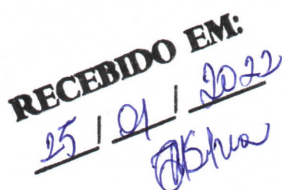 RECEBIDO EM:
25 / 01 / 2022